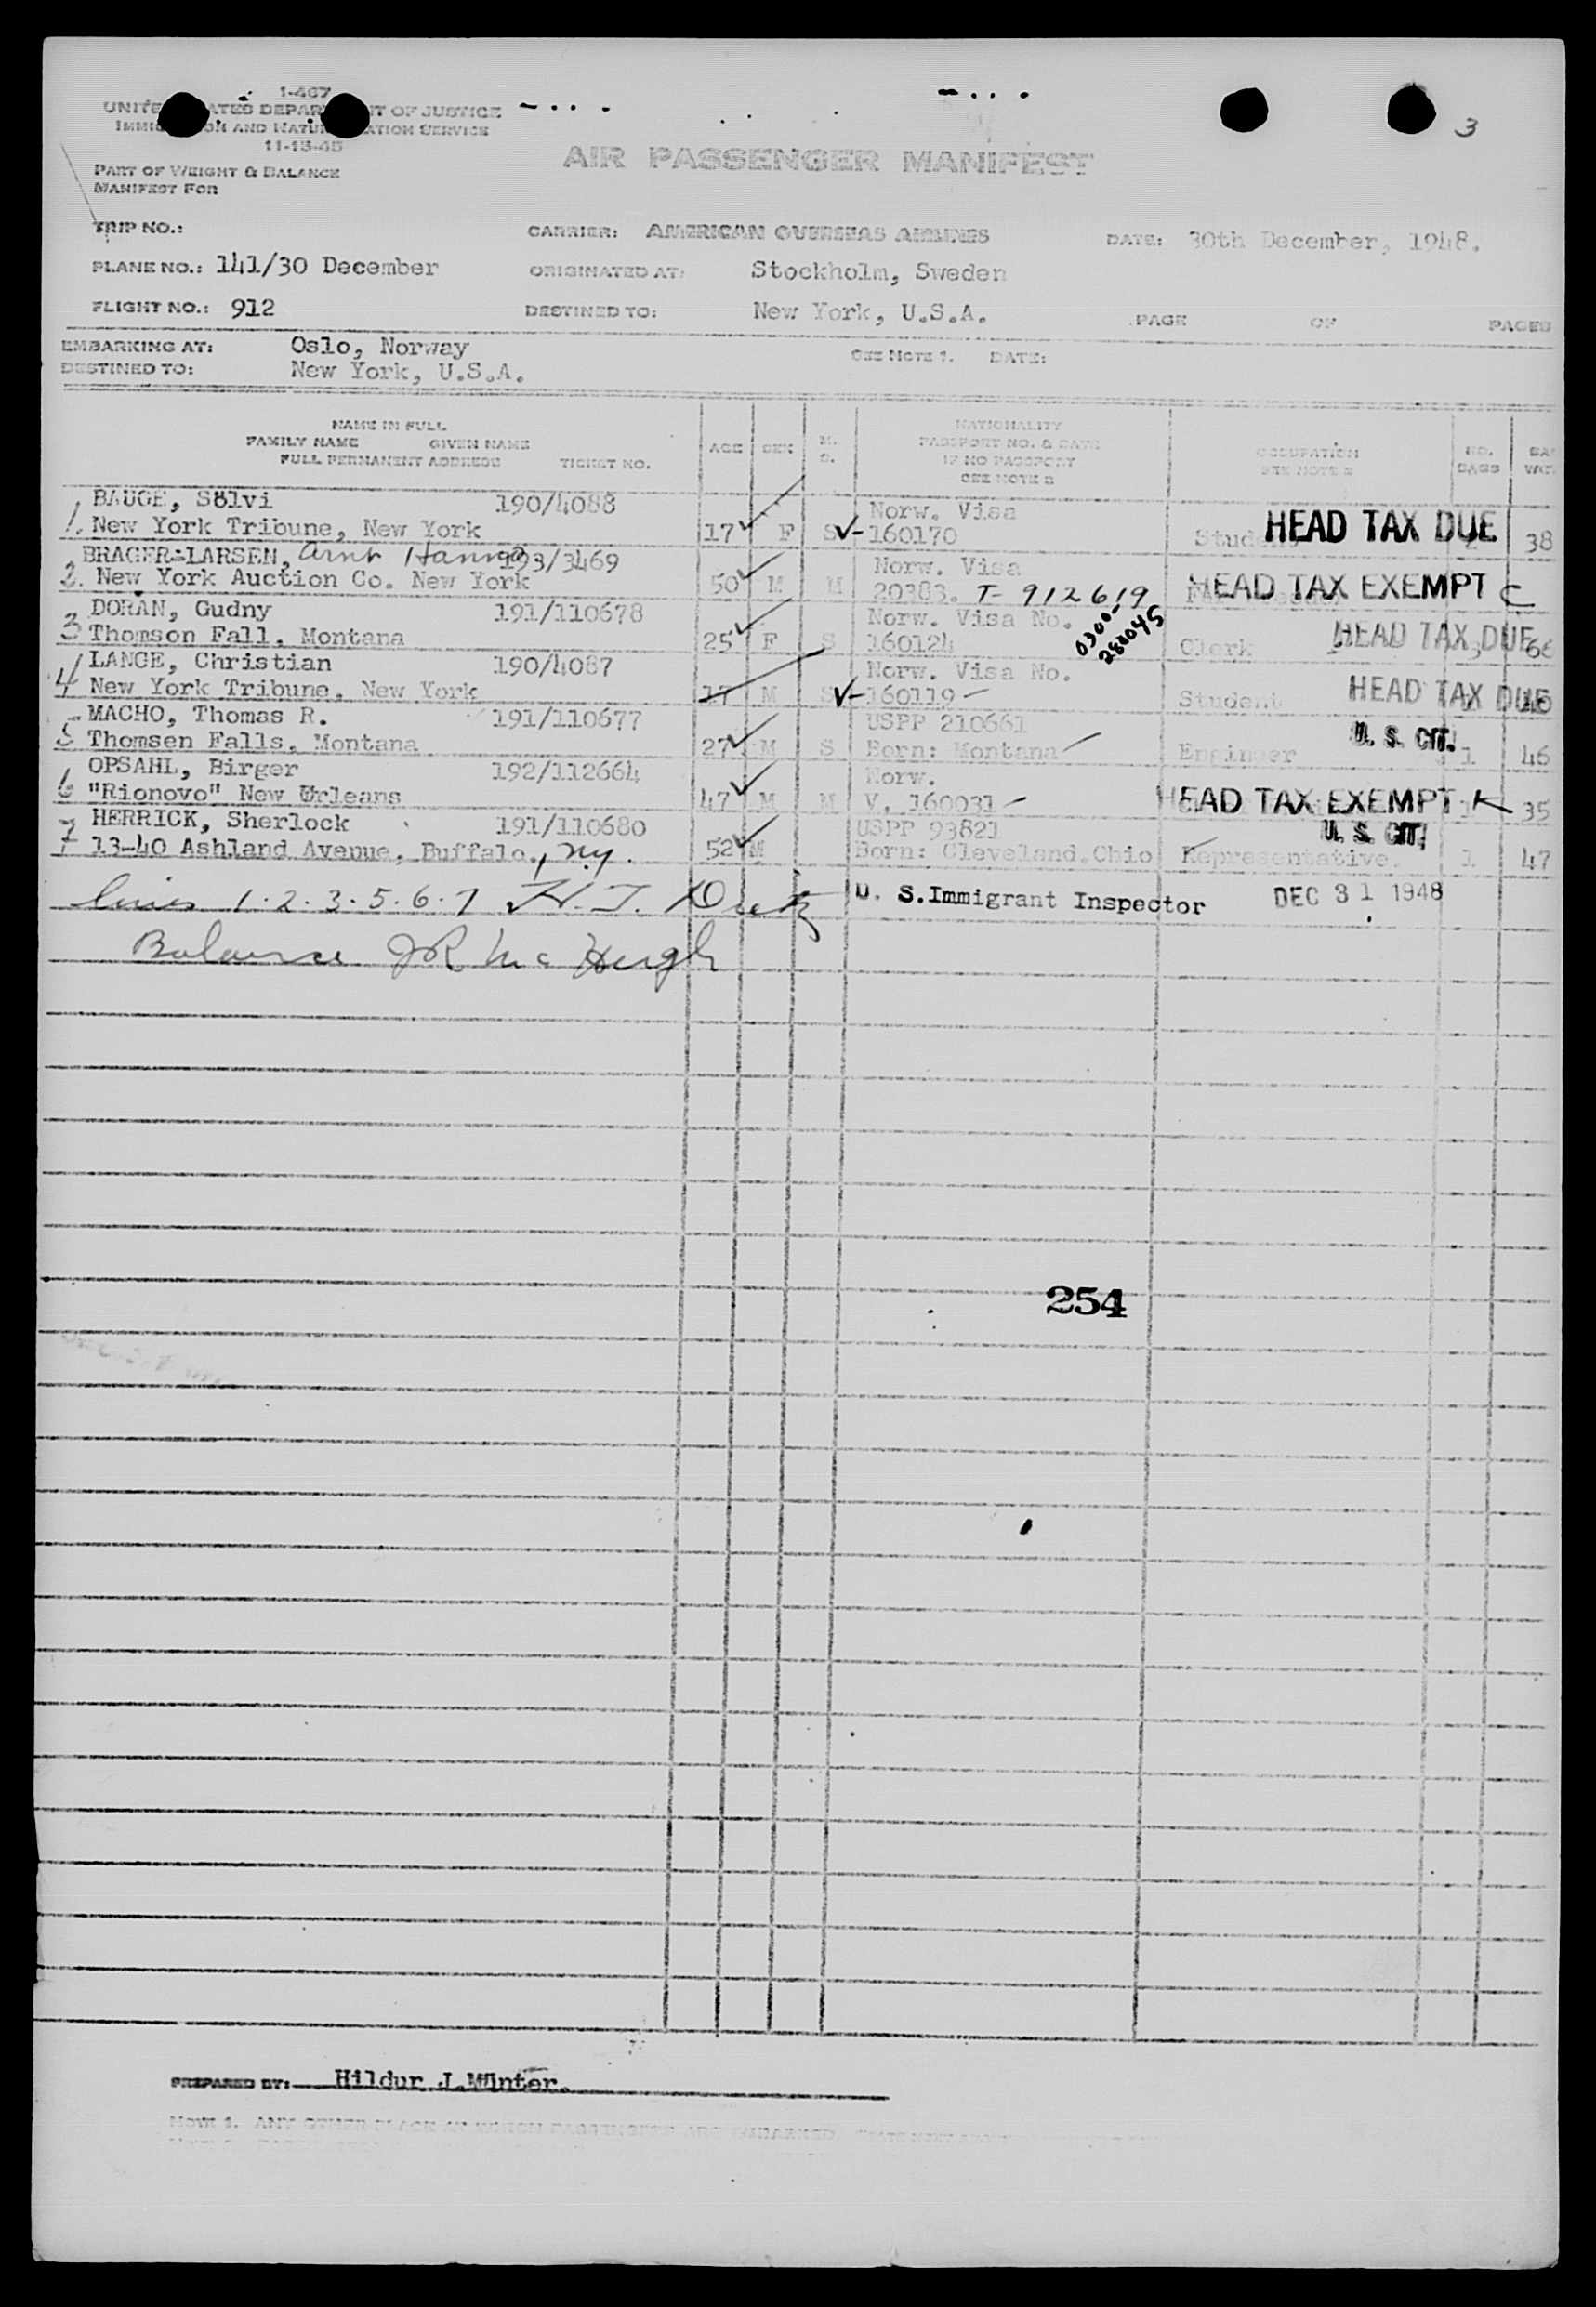 3
1-467
UNITED STATES DEPARTMENT OF JUSTICE
IMMIGRATION AND NATURALIZATION SERVICE
11-15-45
PART OF WEIGHT & BALANCE
MANIFEST FOR
AIR PASSENGER MANIFEST
TRIP NO.:
CARRIER: AMERICAN OVERSEAS AIRLINES DATE: 30th December, 1948.
PLANE NO.: 141/30 December ORIGINATED AT: Stockholm, Sweden
FLIGHT NO.: 912 DESTINED TO: New York, U.S.A. PAGE OF PAGES
EMBARKING AT: Oslo, Norway SEE NOTE 1. DATE:
DESTINED TO: New York, U.S.A.
NAME IN FULL
FAMILY NAME GIVEN NAME
FULL PERMANENT ADDRESS TICKET NO.
AGE SEX M. S.
NATIONALITY
PASSPORT NO. & DATE
IF NO PASSPORT
SEE NOTE 2
OCCUPATION
SEE NOTE 2
NO.
BAGS
BAG
1. BAUGE, Sölvi 190/4088 Norw. Visa
New York Tribune, New York 17 F S 160170 Student HEAD TAX DUE 38
2. BRAGER-LARSEN, Arnt 193/3469 Norw. Visa
New York Auction Co. New York 50 M M 20383. T-912619 HEAD TAX EXEMPT C
3 DORAN, Gudny 191/110678 Norw. Visa No. 0300-
Thomson Fall, Montana 25 F S 160124 282045 Clerk HEAD TAX DUE 3 66
4 LANGE, Christian 190/4087 Norw. Visa No.
New York Tribune, New York 17 M S 160119 Student HEAD TAX DUE
5 MACHO, Thomas R. 191/110677 USPP 210661 U. S. CIT.
Thomsen Falls, Montana 27 M S Born: Montana Engineer 1 46
6 OPSAHL, Birger 192/112664 Norw.
"Rionovo" New Orleans 47 M M V. 160031 HEAD TAX EXEMPT K 1 35
7 HERRICK, Sherlock 191/110680 USPP 93821 U. S. CIT.
13-40 Ashland Avenue, Buffalo, N.Y. 52 M Born: Cleveland.Ohio Representative. 1 47
lines 1.2.3.5.6.7 H. J. U. S. Immigrant Inspector DEC 31 1948
Balance JR McHugh
254
PREPARED BY: Hildur J.Münter.
NOTE 1. ANY OTHER PLACE AT WHICH PASSENGERS ARE EMBARKED.